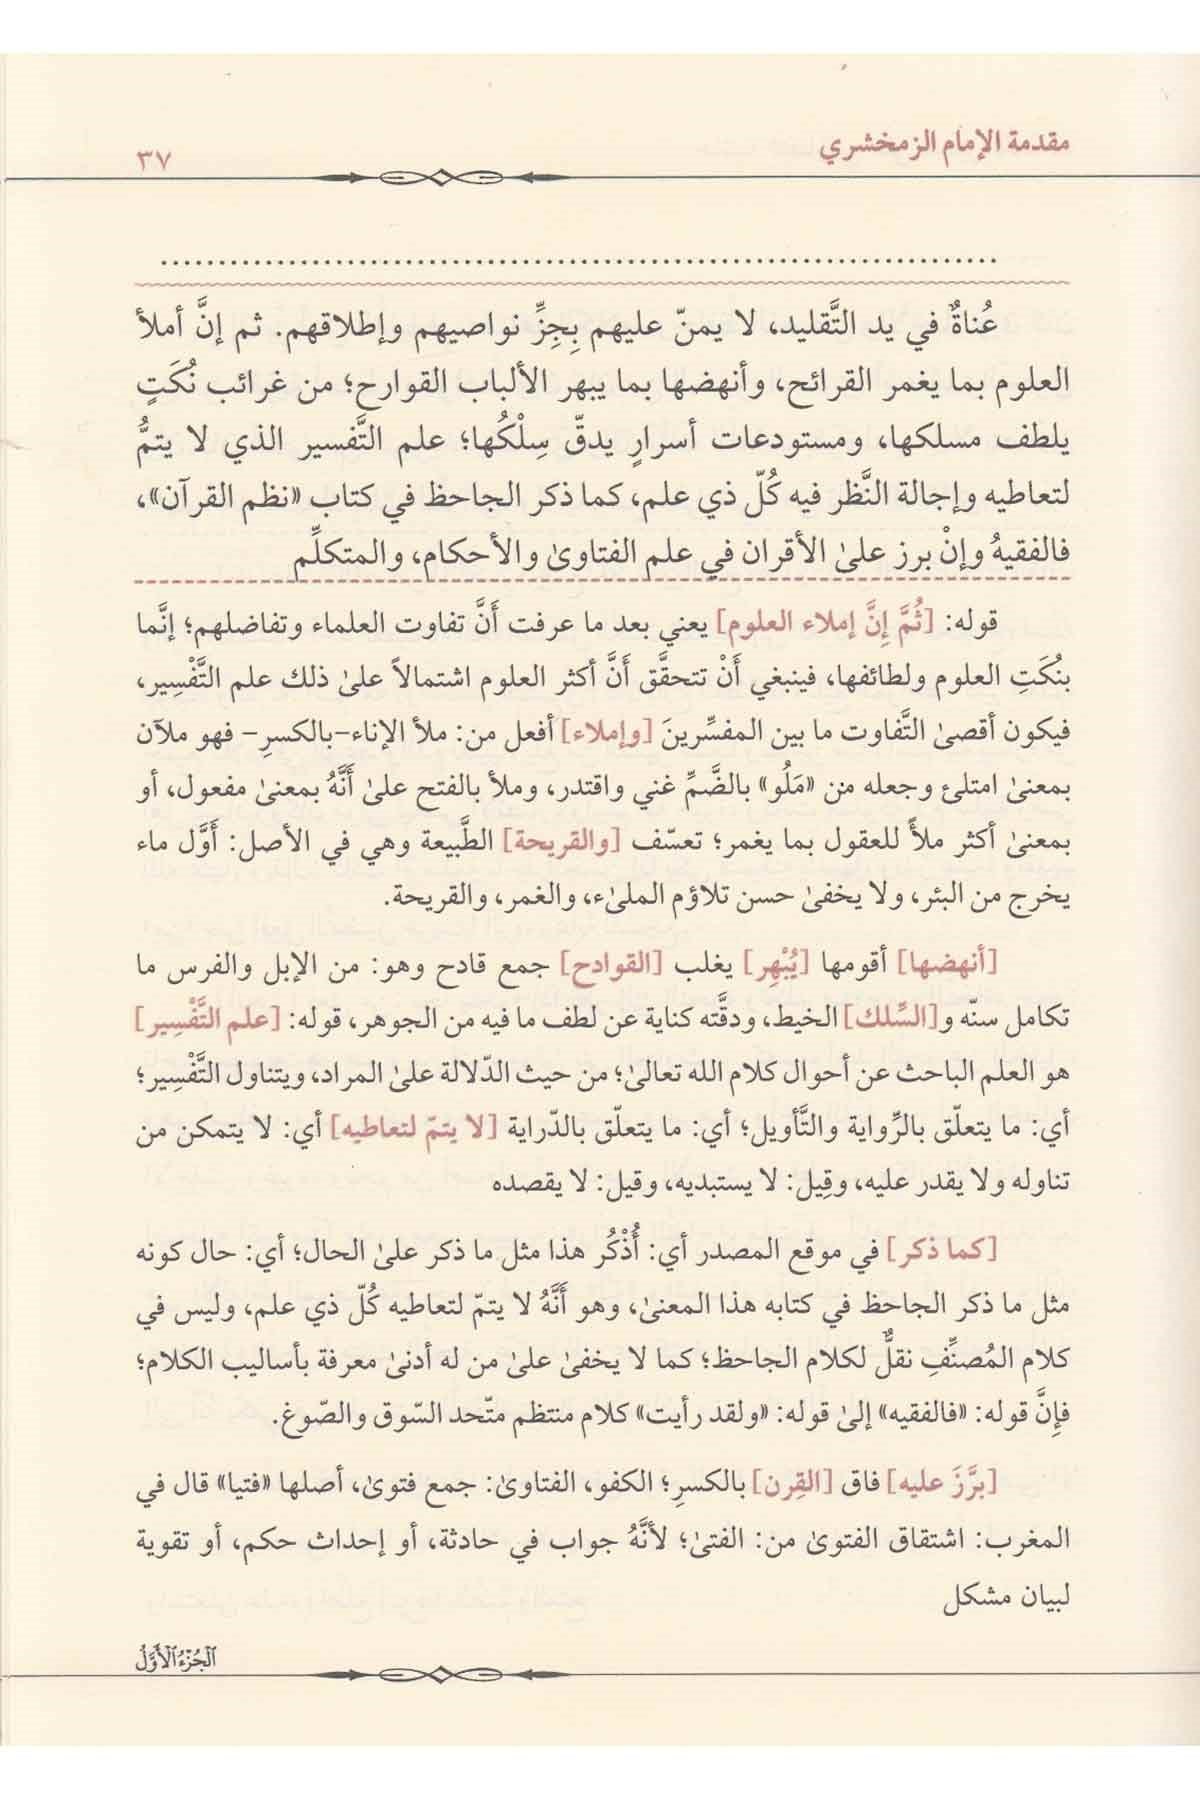 مقدمة الإمام الزمخشري
٣٧
عُناةٌ في يد التَّقليد، لا يمنّ عليهم بِجِزِّ نواصيهم وإطلاقهم. ثم إنَّ أملأ
العلوم بما يغمر القرائح، وأنهضها بما يبهر الألباب القوارح؛ من غرائب نُكَتٍ
يلطف مسلكها، ومستودعات أسرارٍ يدقّ سِلْكُها؛ علم التَّفسير الذي لا يتمُّ
لتعاطيه وإجالة النَّظر فيه كُلّ ذي علم، كما ذكر الجاحظ في كتاب «نظم القرآن»،
فالفقيهُ وإنْ برز علىٰ الأقران في علم الفتاوىٰ والأحكام، والمتكلِّم
قوله: [ثُمَّ إِنَّ إملاء العلوم] يعني بعد ما عرفت أَنَّ تفاوت العلماء وتفاضلهم؛ إنَّما
بنُكَتِ العلوم ولطائفها، فينبغي أَنْ تتحقَّق أَنَّ أكثر العلوم اشتمالاً علىٰ ذلك علم التَّفْسِير،
فيكون أقصىٰ التَّفاوت ما بين المفسِّرينَ [وإملاء] أفعل من: ملأ الإناء-بالكسرِ- فهو ملآن
بمعنىٰ امتلئ وجعله من «مَلُو» بالضَّمِّ غني واقتدر، وملأ بالفتح علىٰ أَنَّهُ بمعنىٰ مفعول، أو
بمعنىٰ أكثر ملأً للعقول بما يغمر؛ تعسّف [والقريحة] الطَّبيعة وهي في الأصل: أَوَّل ماء
يخرج من البئر، ولا يخفىٰ حسن تلاؤم المليء، والغمر، والقريحة.
[أنهضها] أقومها [يُبْهِر] يغلب [القوادح] جمع قادح وهو: من الإبل والفرس ما
تكامل سنّه و[السِّلك] الخيط، ودقَّته كناية عن لطف ما فيه من الجوهر، قوله: [علم التَّفْسِير]
هو العلم الباحث عن أحوال كلام الله تعالىٰ؛ من حيث الدّلالة علىٰ المراد، ويتناول التَّفْسِير؛
أي: ما يتعلّق بالرِّواية والتَّأويل؛ أي: ما يتعلّق بالدّراية [لا يتمّ لتعاطيه] أي: لا يتمكن من
تناوله ولا يقدر عليه، وقِيل: لا يستبديه، وقيل: لا يقصده
[كما ذكر] في موقع المصدر أي: أُذْكُر هذا مثل ما ذكر علىٰ الحال؛ أي: حال كونه
مثل ما ذكر الجاحظ في كتابه هذا المعنىٰ، وهو أَنَّهُ لا يتمّ لتعاطيه كُلّ ذي علم، وليس في
كلام المُصنِّفِ نقلٌ لكلام الجاحظ؛ كما لا يخفىٰ علىٰ من له أدنىٰ معرفة بأساليب الكلام؛
فإِنَّ قوله: «فالفقيه» إلىٰ قوله: «ولقد رأيت» كلام منتظم متّحد السّوق والصّوغ.
[برَّزَ عليه] فاق [القِرن] بالكسرِ؛ الكفو، الفتاوىٰ: جمع فتوىٰ، أصلها «فتيا» قال في
المغرب: اشتقاق الفتوىٰ من: الفتىٰ؛ لأَنَّهُ جواب في حادثة، أو إحداث حكم، أو تقوية
لبيان مشكل
الجُزءُ الأَوَّلُ